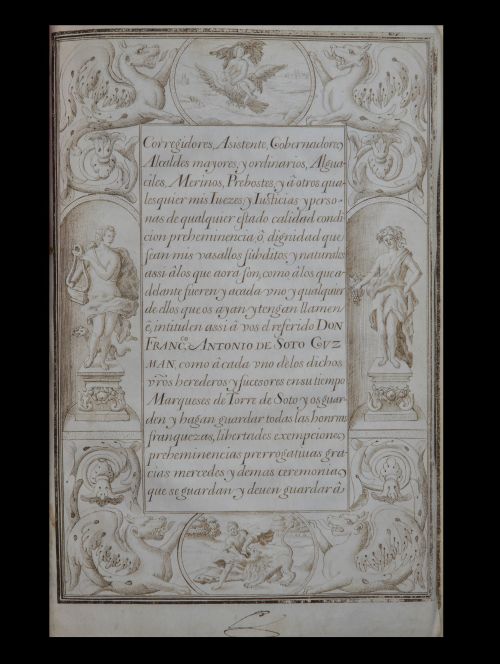 Corregidores, Asistente, Gobernadores,
Alcaldes mayores, y ordinarios, Algua
ciles, Merinos, Prebostes, y â otros qua
lesquier mis Iuezes, y Iusticias y perso-
nas de qualquier estado calidad condi
cion preheminencia ô, dignidad que
sean mis vasallos subditos y naturales
assi âlos que aora son, como âlos que a-
delante fueren y acada vno y qualquier
de ellos que os ayan, y tengan llamen
è, intitulen assi â vos el referido DON
FRANC.º ANTONIO DE SOTO GVZ
MAN, como â cada vno delos dichos
vrōs herederos y sucesores en su tiempo
Marqueses de Torre de Soto y os guar
den y hagan guardar todas las honrras
franquezas, libertades exempciones,
preheminencias prerrogatiuas gra
cias mercedes y demas ceremonias
que se guardan y deuen guardar â